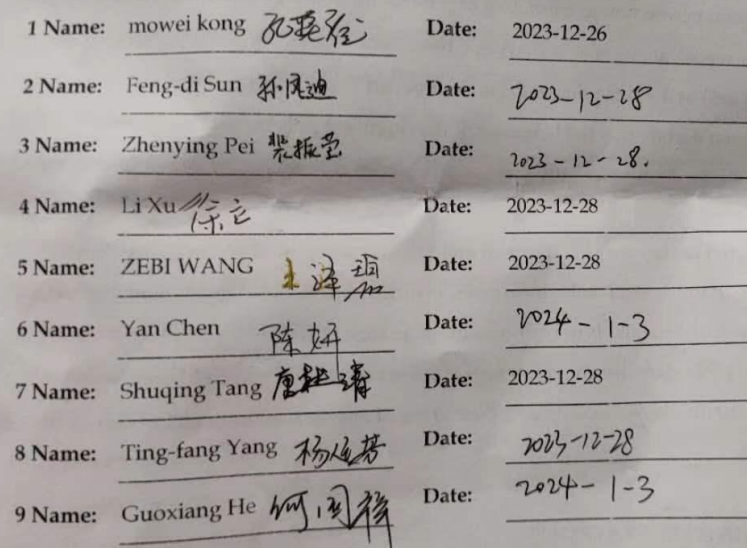 1 Name: mowei kong Date: 2023-12-26
2 Name: Feng-di Sun 孙凤迪 Date: 2023-12-28
3 Name: Zhenying Pei 裴振莹 Date: 2023-12-28.
4 Name: Li Xu 徐立 Date: 2023-12-28
5 Name: ZEBI WANG 王泽碧 Date: 2023-12-28
6 Name: Yan Chen 陈妍 Date: 2024-1-3
7 Name: Shuqing Tang Date: 2023-12-28
8 Name: Ting-fang Yang Date: 2023-12-28
9 Name: Guoxiang He 何国祥 Date: 2024-1-3